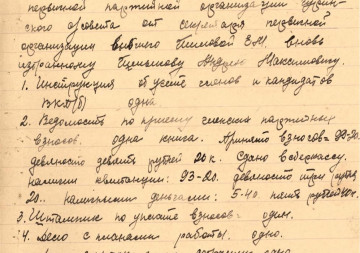 первичной партийной организации
ского с/совета от секретаря первичной
организации выбывшего Климовой Е.М. вновь
избранному Андрею Максимовичу.
1. Инструкция об учете членов и кандидатов
ВКП(б) одна
2. Ведомость по приему членских партийных
взносов. одна книга. Принято взносов = 99-20.
девяносто девять рублей 20 к. Сдано в сберкассу.
наличии квитанции: 93-20. девяносто три рубля
20.. наличными деньгами: 5-40. пять рублей 40 к.
3. Штампик по уплате взносов: один.
4. Дело с планами работы. одно.